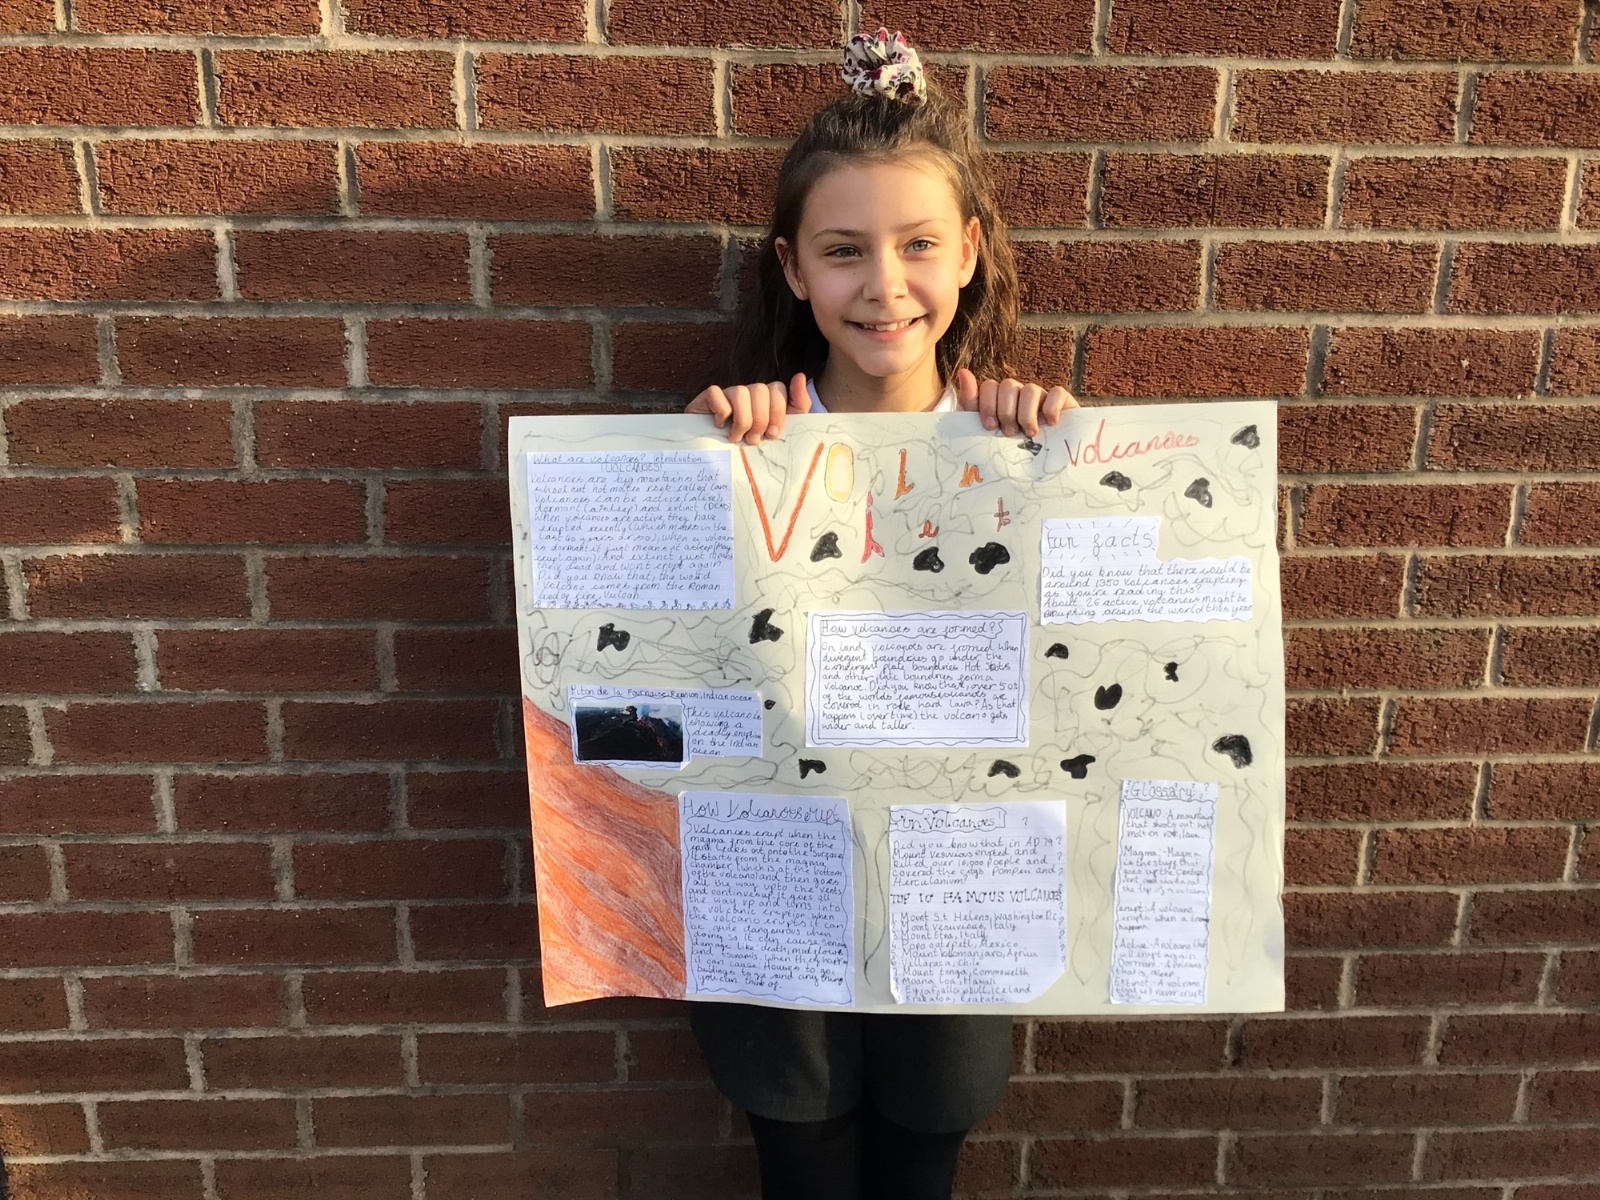 What are volcanoes? Introduction
VOLCANOES!
Volcanoes are big mountains that
shoot out hot molten rock called lava
Volcanoes can be active, (alive),
dormant (asleep) and extinct (DEAD)
When volcanoes are active, they have
erupted recently (Which means in the
last 40 years or so), When a volcano
is dormant it just means it asleep (may
erupt again), And extinct just means
they dead and wont erupt again
Did you know that, the word
Volcano comes from the Roman
god of fire, Vulcan.
VOLnt
Violent
Volcanoes
fun facts
Did you know that there could be
around 1350 volcanoes erupting
as you're reading this?
About 26 active volcanoes might be
erupting around the world this year
How volcanoes are formed?
On land, volcanoes are formed when
divergent boundries go under the
convergent plate boundries. Hot
and other plate boundries form a
volcanoe. Did you know that, over 50%
of the worlds famous volcanoes are
covered in rock hard lava? As that
happens (over time) the volcano gets
wider and taller.
Piton de la Fournaise, Reunion, Indian ocean
This volcano is
showing a
deadly eruption
on the Indian
ocean.
How Volcanoes erupt
Volcanoes erupt when the
magma from the core of the
leaks out onto the surface
It starts from the magma
chamber (which is at the bottom
of the volcano) and then goes
all the way up to the vents
and continues up it goes all
the way up and turns into
a volcanic eruption when
the volcano erupts it can
be quite dangerous when
doing so it can cause
damage like: death, mudflows
and tsunamis. When they
it can cause Houses to go,
buildings to go and anything
you can think of.
Fun Volcanoes! ?
Did you know that in AD 79 ?
Mount Vesuvious erupted and
killed over 16,000 people and
covered the citys Pompeii and
Herculanium?
TOP 10 FAMOUS VOLCANOES
Mount S.t Helens, Washington D.C
Mount vesuvious, Italy
Mount Etna, Italy
Popocatepetl, Mexico
Mount kilomanjaro, Africa
Villarica, Chile
Mount tonga, Commonwelth
Moana Loa, Hawaii
Eyjafjallajökull, Iceland
Krakatoa, Krakatoa
Glossary ?
VOLCANO:-A mountain
that shoots out hot
molten rock, lava.
Magma:-Magma
is the stuff that
goes up the central
vent and shoots out
the top of a volcano
erupt:-A volcano
erupts when a
happens.
Active:-A volcano that
will erupt again
Dormant:-A volcano
that is asleep
Extinct:-A volcano
that will never erupt